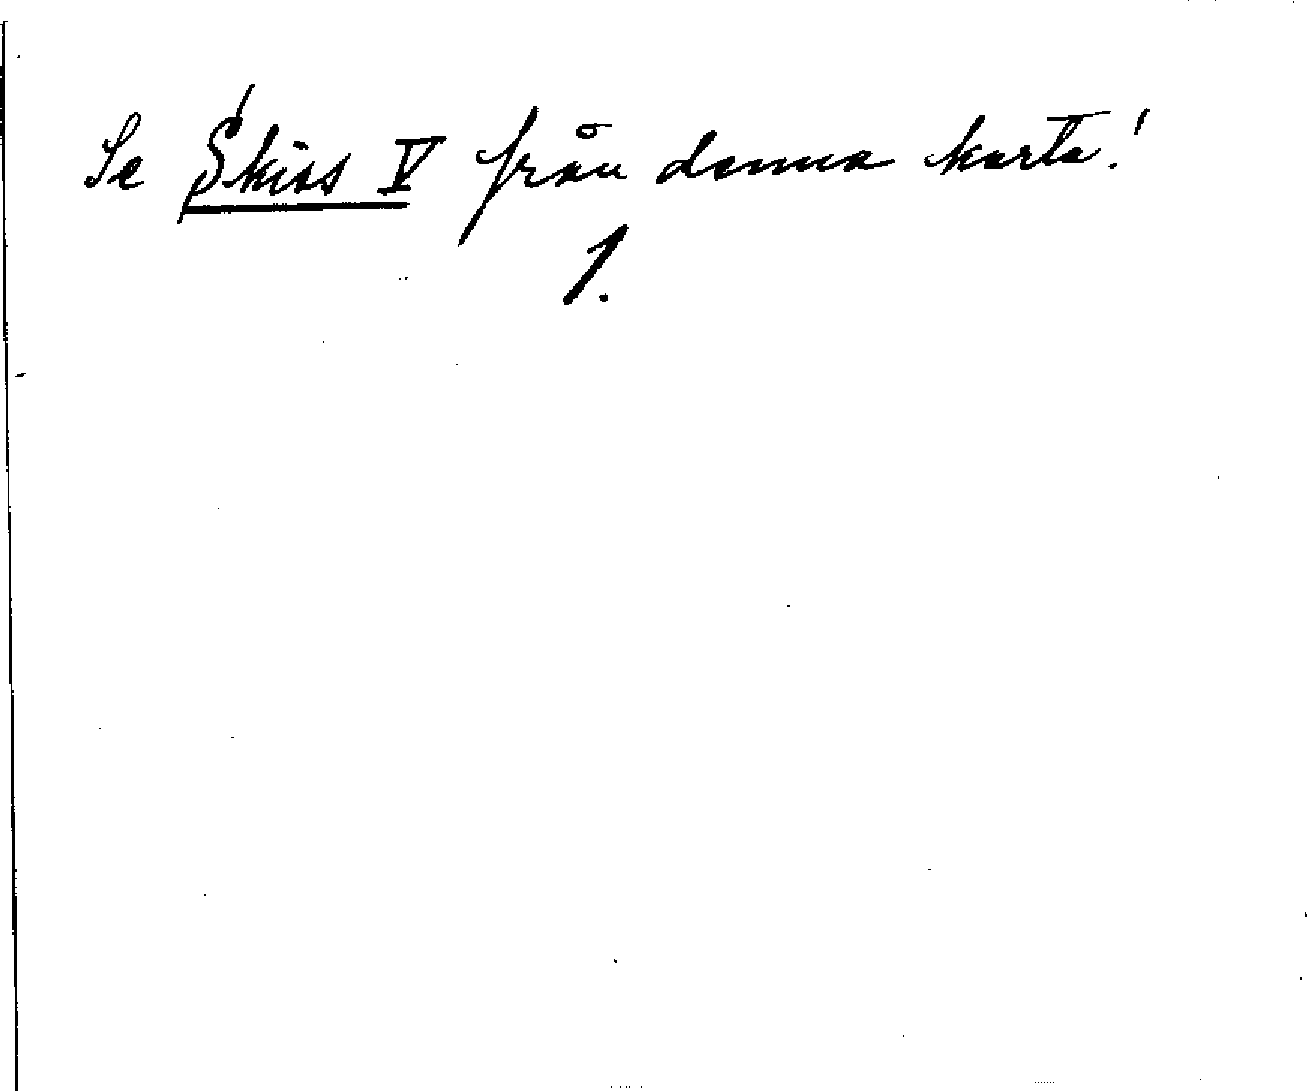 Se Skiss V från denna karta!
1.